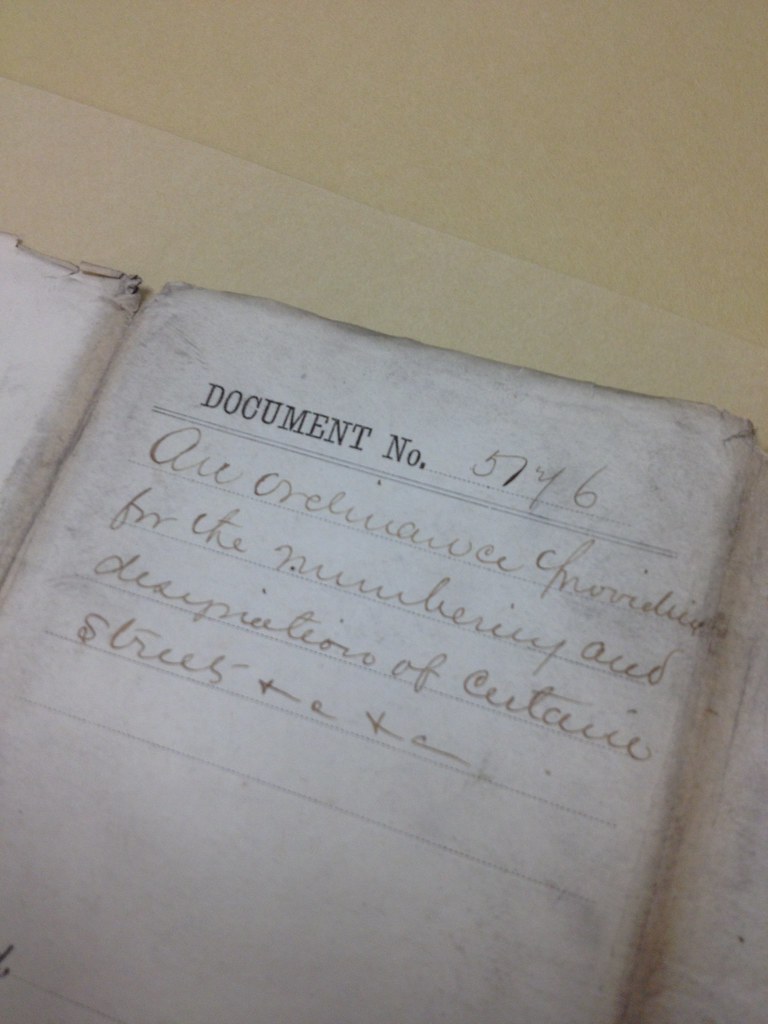 DOCUMENT No. 5746
An ordinance providing
for the numbering and
designation of certain
Streets &c &c